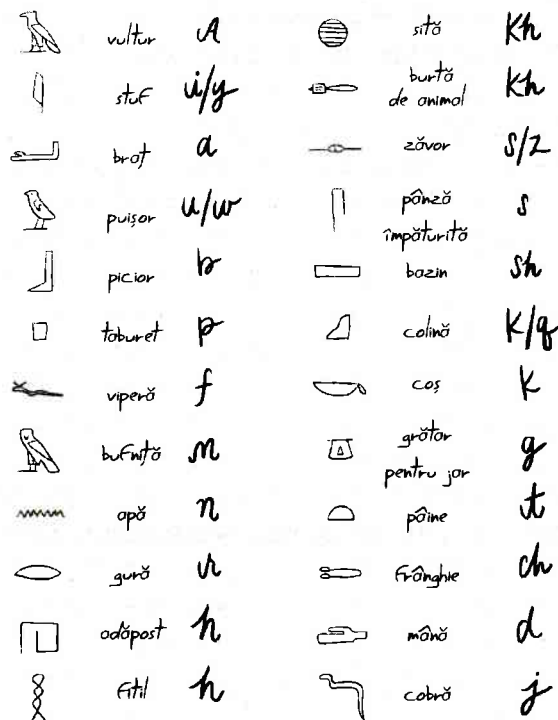 vultur A
stuf i/y
braț a
puișor u/w
picior b
taburet p
viperă f
bufniță m
apă n
gură r
adăpost h
fitil h
sită Kh
burtă
de animal Kh
zăvor s/z
pânză s
împăturită
bazin sh
colină K/q
coș K
grătar g
pentru jar
pâine t
frânghie ch
mână d
cobră j